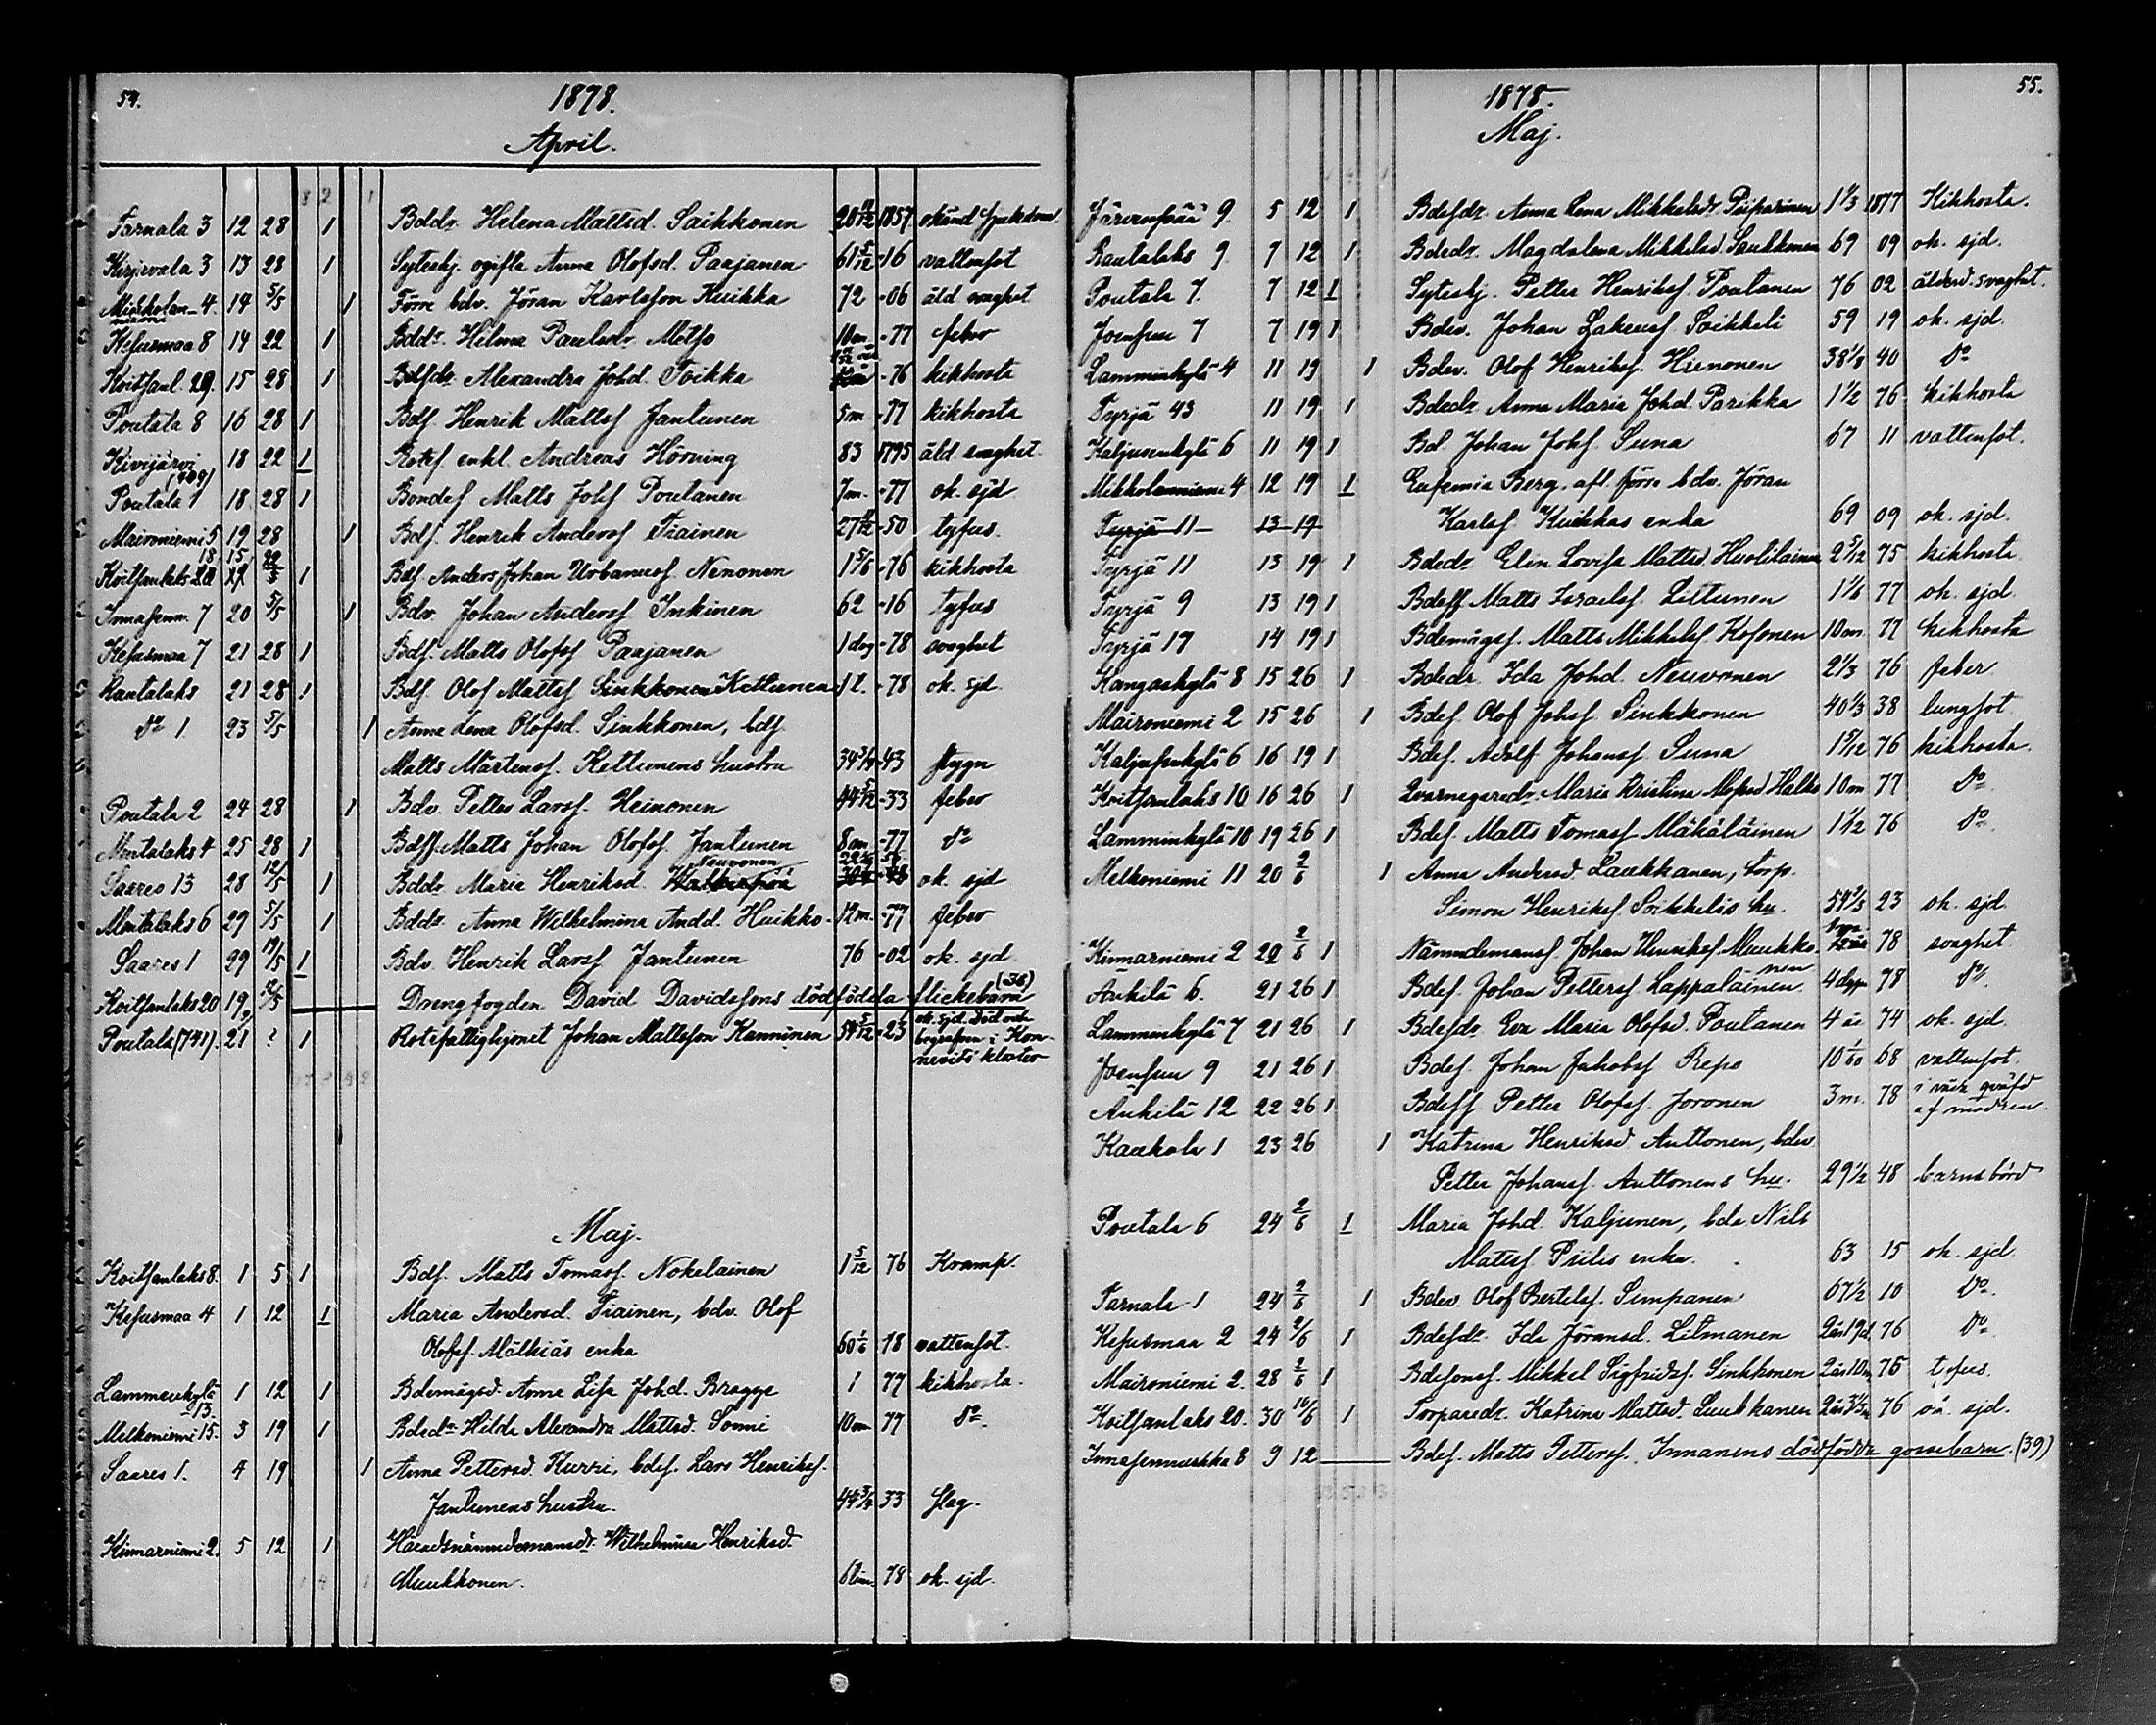 54.
1878.
April.
Tarnala 3 12 28 1 Bddr. Helena Mattsd. Saikkonen 20 9/12 1857 okänd sjukdom.
Kirjavala 3 13 28 1 Syteshj. ogifta Anna Olofsd. Paajanen 61 5/12 -16 vattusot
Mikkolanniemi 4. 14 5/5 1 Förre bdv. Jöran Karlsson Kuikka 72 -06 åld svaghet
Kesusmaa 8 14 22 1 Bddr. Helma Paulsdr. Metso 10m -77 feber
Koitsanl. 29. 15 28 1 Bdsdr. Alexandra Johd. Toikka -76 kikhosta
Poutala 8 16 28 1 Bdf. Henrik Mattsf Jantunen 5m -77 kikhosta
Kivijärvi (409) 18 22 1 Rotef. enkl. Andreas Hörning 83 1795 åld. svaghet.
Poutala 1 18 28 1 Bondes Matts Johf Poutanen 7m. -77 ok. sjd
Maironiemi 5 19 28 1 Bdf. Henrik Andersf Tiainen 27 -50 tyfus.
Koitsanlaks 1 Bdf. Anders Johan Urbanusf. Nenonen 1 5/6 -76 kikhosta
7 20 5/5 1 Bdv. Johan Andersf Inkinen 62 -16 tyfus
Kesusmaa 7 21 28 1 Bdf. Matts Olofsf Paajanen 1 dag -78 svaghet
Rautalaks 21 28 1 Bdf Olof Mattsf Sinkkonen Kettunen 1 t. -78 ok. sjd.
Do 1. 23 5/5 1 Anna Lena Olofsd. Sinkkonen, bdf.
Matts Mårtensf. Kettunens hustru 34 3/4 -43 stygn
Poutala 2 24 28 1 Bdv. Petter Larsf. Heinonen 44 5/12 -33 feber
Mentalaks 4 25 28 1 Bdff. Matts Johan Olofsf. Jantunen 8m -77 Do
Saares 13 28 12/5 1 Bddr. Maria Henriksd. Neuvonen ok. sjd
Mentalaks 6 29 5/5 1 Bddr. Anna Wilhelmina Andd. Huikko. 12m. -77 feber
Saares 1 29 19/5 1 Bdv. Henrik Larsf Jantunen 76 -02 ok. sjd.
Koitsanlaks 20 19 Drengfogden David Davidsfons dödfödda flickebarn (38)
Poutala (741). 21 ? 1 Rotefattighjonet Johan Mattsson Kanninen 54 5/12 -23 ok. sjd. Död och
begrafven i Kon-
nevits kloster
Maj.
Koitsanlaks 8. 1 5 1 Bdf. Matts Tomasf. Nokelainen 1 5/12 76 Kramp.
Kesusmaa 4 1 12 1 Maria Andersd. Tiainen, bdv. Olof
Olofsf. Mälkiäs enka 60 1/6 18 vattusot.
Lamminkylä 13. 1 12 1 Bdemågsd. Anna Lisa Johd. Bragge 1 77 kikhosta.
Melkoniemi 15. 3 19 1 Bdedr. Hilda Alexandra Mattsd. Sonni 10m 77 Do.
Saares 1. 4 19 1 Anna Pettersd. Kurri, bdef. Lars Henriksf.
Jantunens hustru. 44 3/4 33 slag.
Kinnarniemi 2. 5 12 1 Häradsnämndemansdr. Wilhelmina Henriksd.
Muukkonen. 78 ok. sjd.
55.
1878.
Maj.
Järvenpää 9. 5 12 1 Bdesdr. Anna Lena Mikkelsdr. Piiparinen 1 1/3 1877 Kikhosta.
Rautalaks 9. 7 12 1 Bdedr. Magdalena Mikkelsd. Saukkonen 69 09 ok. sjd.
Poutala 7. 7 12 1 Syteshj. Petter Henriksf. Poutanen 76 02 ålderd. svaghet.
Joensuu 7 7 19 1 Bdev. Johan Zakeusf Soikkeli 59 19 ok. sjd.
Lamminkylä 4 11 19 1 Bdev. Olof Henriksf. Hirvonen 38 1/3 40 Do
Tyrjä 43 11 19 1 Bdedr. Anna Maria Johd. Parikka 1 1/2 76 kikhosta
Kaljusenkylä 6 11 19 1 Bd. Johan Johf. Suna 67 11 vattusot.
Mikkolanniemi 4 12 19 1 Eufemia Berg, afl. förre bdv. Jöran
Tyrjä 11 13 19 Karlsf Kuikkas enka 69 09 ok. sjd.
Tyrjä 11 13 19 1 Bdedr. Elin Lovisa Mattsd. Huotilainen 2 5/12 75 kikhosta
Tyrjä 9 13 19 1 Bdeff. Matts Israelsf. Littunen 1 1/6 77 ok. sjd.
Tyrjä 17 14 19 1 Bdemågsf. Matts Mikkelsf Kosonen 10m. 77 kikhosta
Kangaskylä 8 15 26 1 Bdedr. Ida Johd. Neuvonen 2 1/3 76 feber
Maironiemi 2 15 26 1 Bdef. Olof Johsf. Sinkkonen 40 1/3 38 lungsot
Kaljusenkylä 6 16 19 1 Bdef. Adolf Johansf. Suna 76 kikhosta.
Koitsanlaks 10 16 26 1 Qvarnegaredr. Maria Kristina 10m 77 Do
Lamminkylä 10 19 26 1 Bdef. Matts Tomasf. Mäkäläinen 1 1/2 76 Do.
Melkoniemi 11 20 2/6 1 Anna Andersd. Laukkanen, torp.
Simon Henriksf. Soikkelis hu. 54 2/3 23 ok. sjd.
Kinnarniemi 2 22 2/6 1 Nämndemansf. Johan Henriksf. Muukko. 78 svaghet
Ankila 6. 21 26 1 Bdef. Johan Pettersf. Lappalainen 4 dagar 78 Do.
Lamminkylä 7 21 26 1 Bdesdr. Eva Maria Olofsd. Poutanen 4 år 74 ok. sjd.
Joensuu 9 21 26 1 Bdef. Johan Jakobsf Repo 10 1/60 68 vattusot
Ankila 12 22 26 1 Bdeff Petter Olofsf. Joronen 3m. 78 i våda qväfd
af modren.
Kaukola 1 23 26 1 Katrina Henriksd. Anttonen, bdev
Petter Johansf. Anttonens hu. 29 1/2 48 barnsbörd
Poutala 6 24 2/6 1 Maria Johd. Kaljunen, bde Nils
Mattsf Piilis enka. 63 15 ok. sjd.
Tarnala 1 24 2/6 1 Bdev. Olof Bertelsf. Simpanen 67 1/2 10 Do.
Kesusmaa 2 24 2/6 1 Bdesdr. Ida Jöransd. Litmanen 2 år 19 d. 76 Do.
Maironiemi 2. 28 2/6 1 Bdesonsf. Mikkel Sigfridsf. Sinkkonen 2 år 10m 75 tyfus.
Koitsanlaks 20. 30 16/6 1 Torparedr. Katrina Mattsd. Luukkanen 76 ok. sjd.
8 9 12 Bdef. Matts Pettersf. Inmanens dödfödda gossebarn. (39)